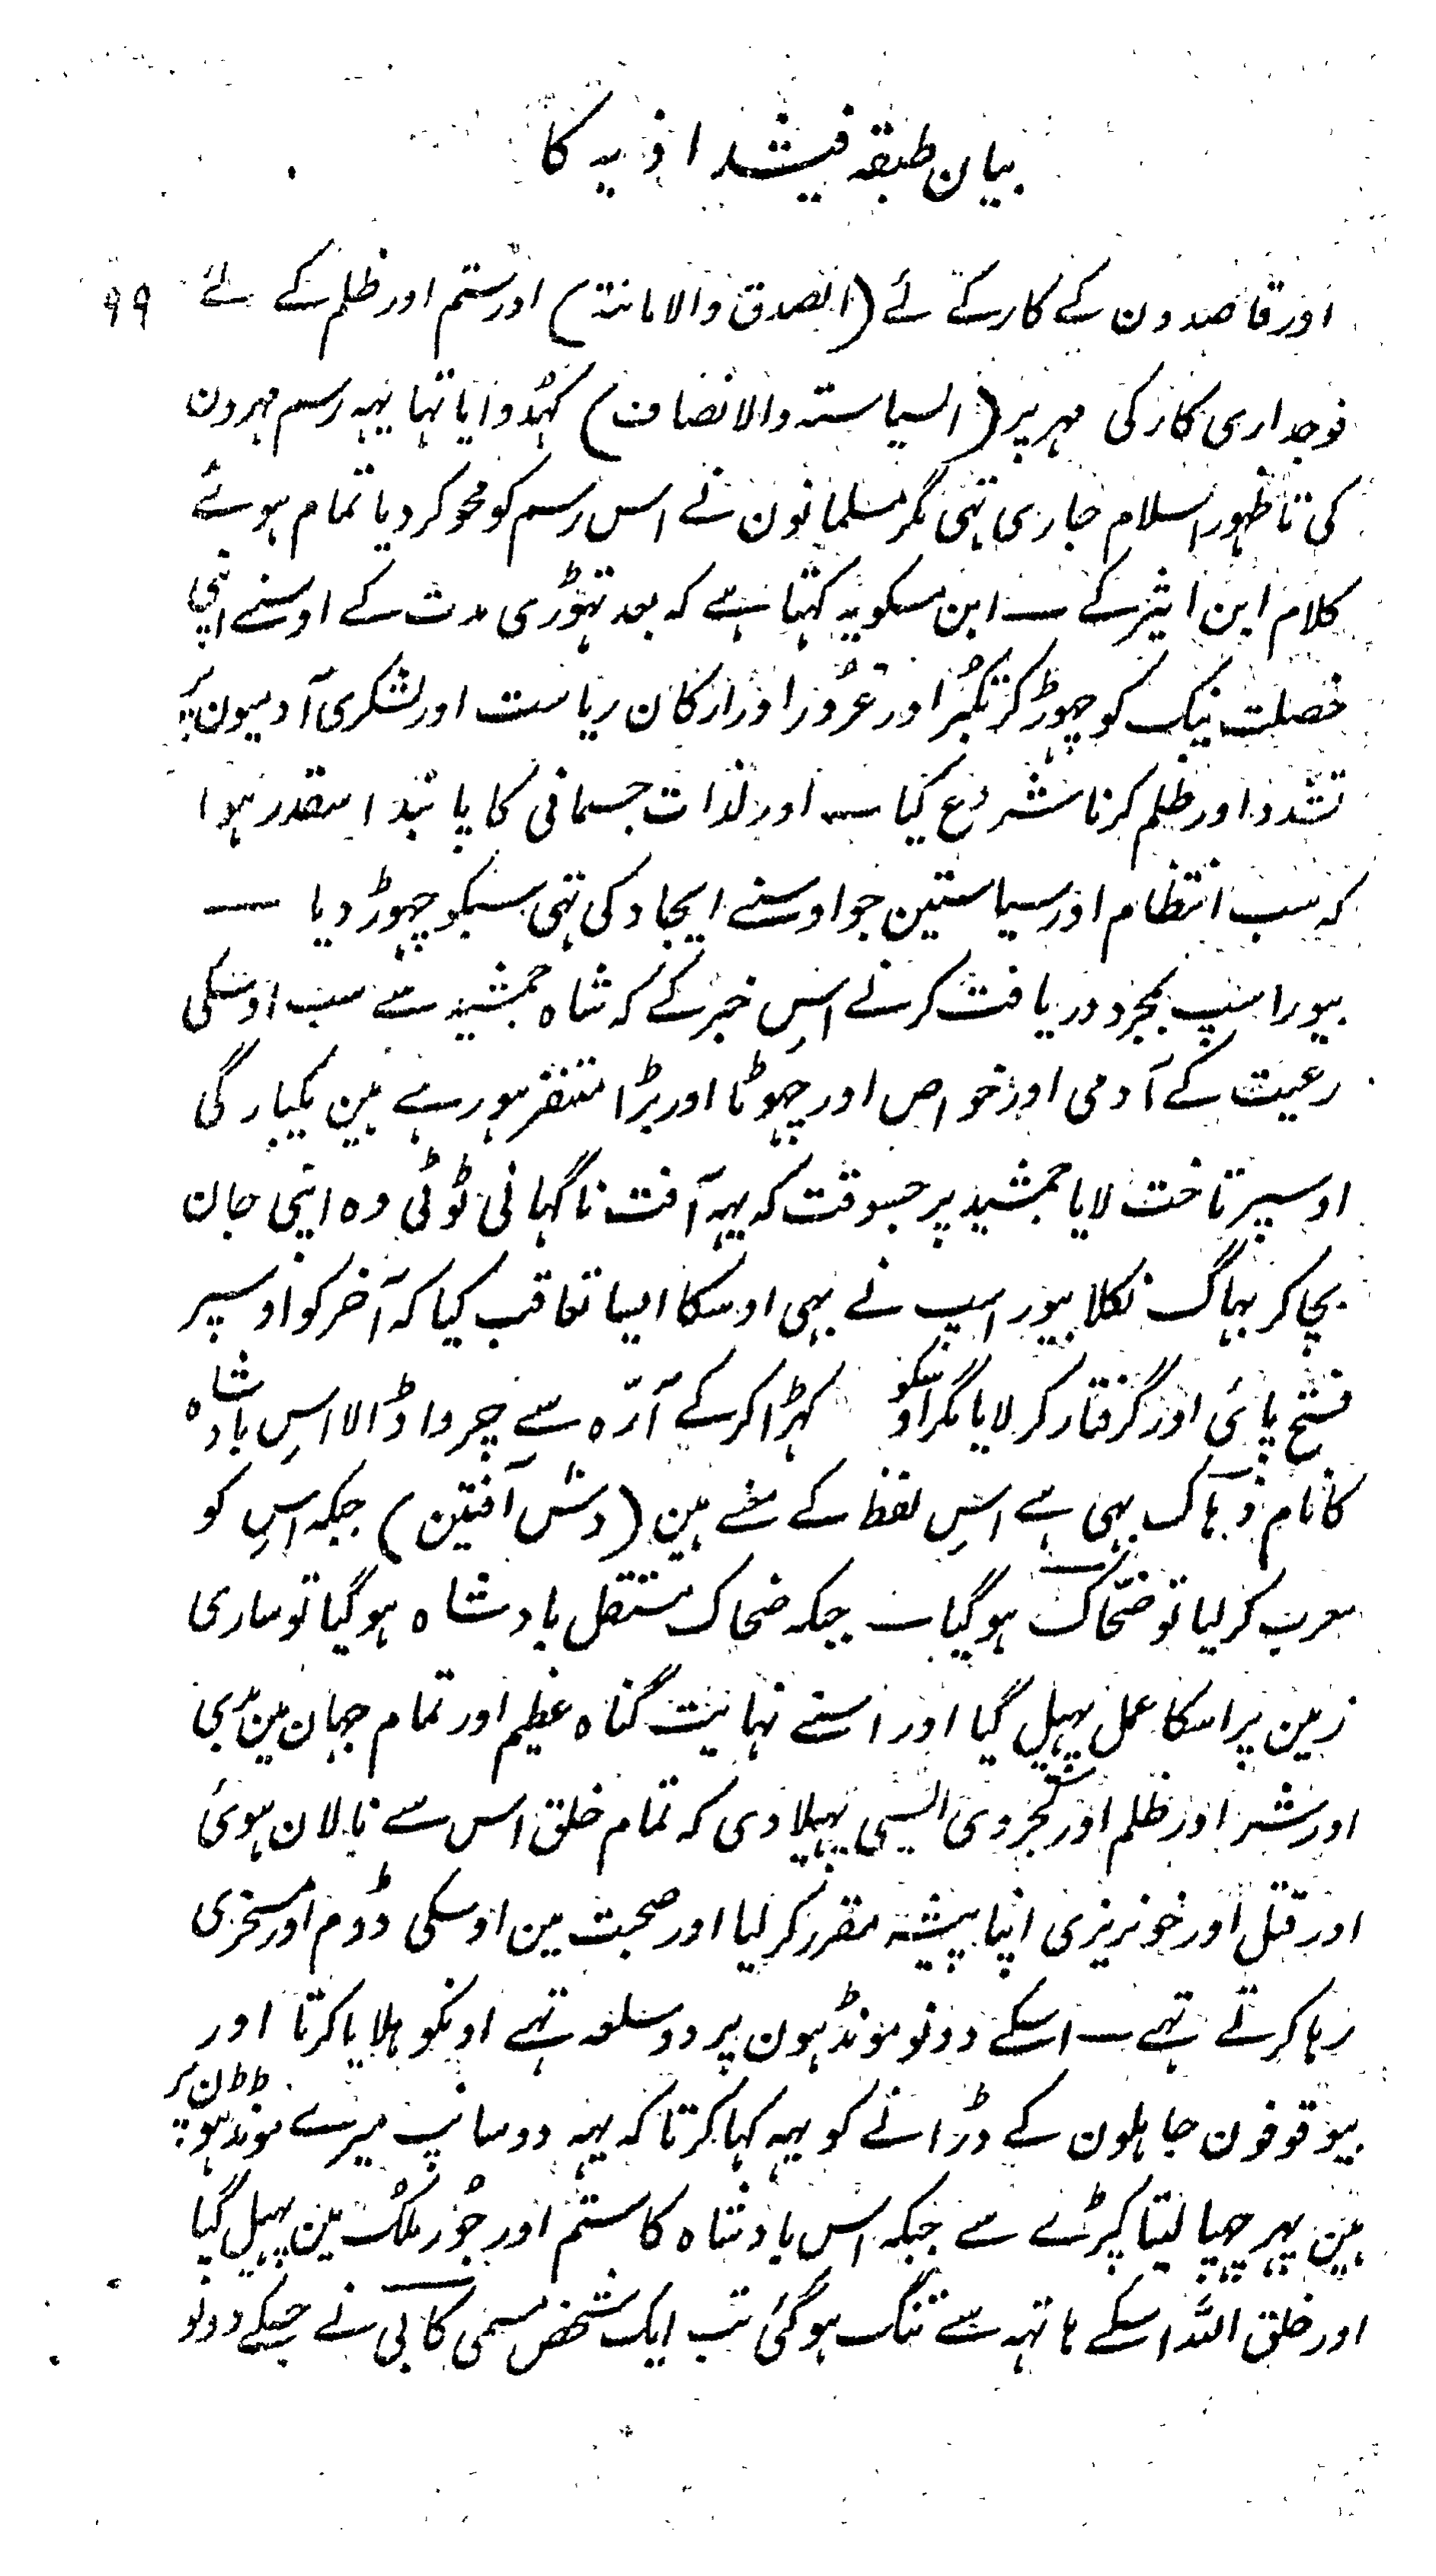 بیان طبقہ فیشدادیہ کا
اور قاصدون کے کار کے لئے (الصدق والامانۃ) اور ستم اور ظلم کے لئے ۹۹
فوجداری کار کی مہر پر (السیاستہ والانصاف) کہدوایا تہا یہہ رسم مہرون
کی تا ظہور اسلام جاری تہی مگر مسلمانون نے اس رسم کو محو کر دیا تمام ہوئے
کلام ابن اثیر کے ــ ابن مسکویہ کہتا ہے کہ بعد تہوڑی مدت کے اوسنے اپنی
خصلت نیک کو چہوڑ کر تکبُر اور غرُور اور ارکان ریاست اور لشکری آدمیون پر
تشدد اور ظلم کرنا شروع کیا ــ اور لذات جسمانی کا پابند اسقدر ہوا
کہ سب انتظام اور سیاستین جو اوسنے ایجاد کی تہی سبکو چہوڑ دیا ــ
بیوراسپ بمجرد دریافت کرنے اسِ خبر کے کہ شاہ جمشید سے سب اوسکی
رعیت کے آدمی اور خواص اور چہوٹا اور بڑا متنفر ہو رہے ہین یکبارگی
اوسپر تاخت لایا جمشید پر جسوقت کہ یہہ آفت ناگہانی ٹوٹی وہ اپنی جان
بچا کر بہاگ نکلا بیوراسپ نے بہی اوسکا ایسا تعاقب کیا کہ آخر کو اوسپر
فتح پائی اور گرفتار کر لایا مگر اوسکو کہڑا کر کے آرّہ سے چروا ڈالا اسِ بادشاہ
کا نام دہآک بہی ہے اسِ لفظ کے معنے ہین (دسْ آفتین) جبکہ اسِ کو
معرب کر لیا تو ضحّاک ہو گیا ــ جبکہ ضحاک مستقل بادشاہ ہو گیا تو ساری
زمین پر اسکا عمل پہیل گیا اور اسنے نہایت گناہ عظیم اور تمام جہان مین بدی
اور شر اور ظلم اور کجروی ایسی پہیلا دی کہ تمام خلق اس سے نالان ہوئی
اور قتل اور خونریزی اپنا پیشہ مقرر کر لیا اور صحبت مین اوسکی ڈوم اور مسخری
رہا کرتے تہے ــ اسکے دونو مونڈہون پر دو سلعہ تہے اونکو ہلایا کرتا اور
بیوقوفون جاہلون کے ڈرانے کو یہہ کہا کرتا کہ یہہ دو سانپ میرے مونڈہون پر
ہین پہر چہپا لیتا کپڑے سے جبکہ اس بادشاہ کا ستم اور جوْر ملکْ مین پہیل گیا
اور خلق اللہ اسکے ہاتہہ سے تنگ ہو گئی تب ایک شخص مسمی کابی نے جسکے دونو